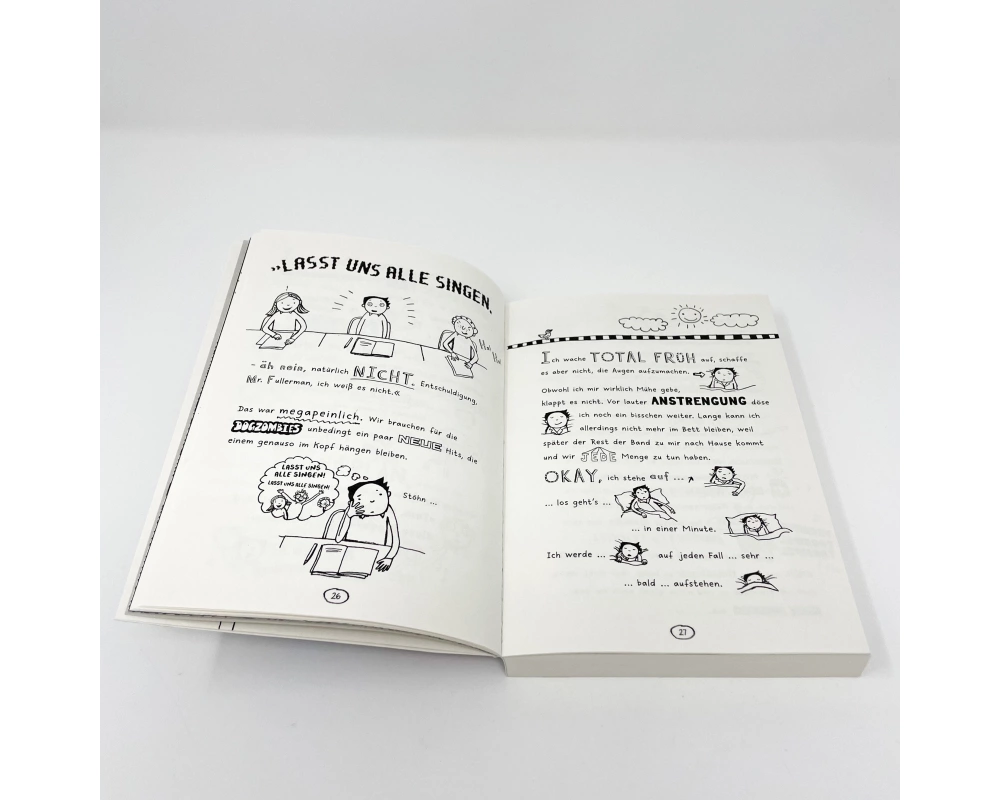 »LASST UNS ALLE SINGEN,
Ha! Ha
- äh nein, natürlich NICHT. Entschuldigung,
Mr. Fullerman, ich weiß es nicht.«
Das war megapeinlich. Wir brauchen für die
DOGZOMBIES unbedingt ein paar NEUE Hits, die
einem genauso im Kopf hängen bleiben.
LASST UNS
ALLE SINGEN!
LASST UNS ALLE SINGEN!
Stöhn ...
26
Ich wache TOTAL FRÜH auf, schaffe
es aber nicht, die Augen aufzumachen.
Obwohl ich mir wirklich Mühe gebe,
klappt es nicht. Vor lauter ANSTRENGUNG döse
ich noch ein bisschen weiter. Lange kann ich
allerdings nicht mehr im Bett bleiben, weil
später der Rest der Band zu mir nach Hause kommt
und wir JEDE Menge zu tun haben.
OKAY, ich stehe auf ...
... los geht's ...
... in einer Minute.
Ich werde ... auf jeden Fall ... sehr ...
... bald ... aufstehen.
27